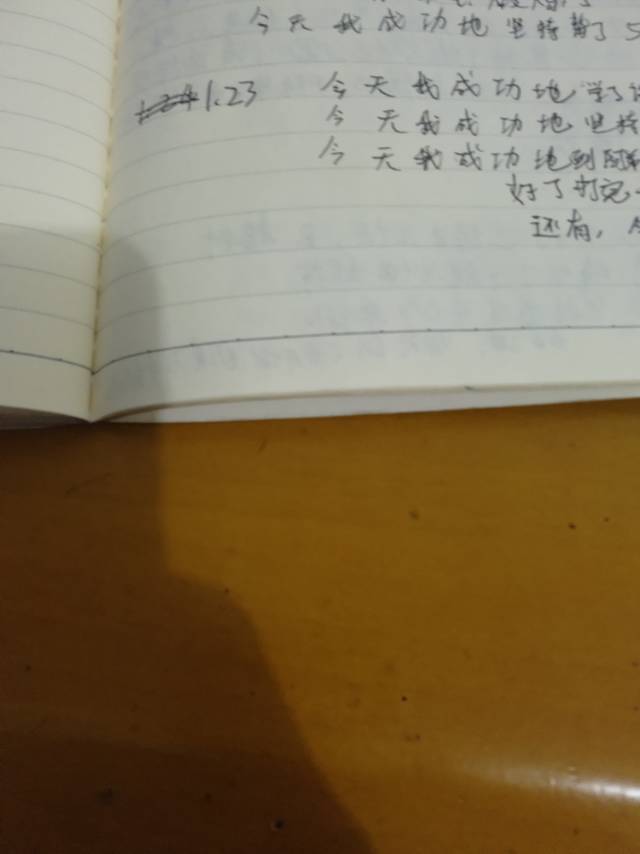 今天我成功地坚持静了5
1.23 今天我成功地学了
今天我成功地坚持
今天我成功地到阿
好了打完
还有，